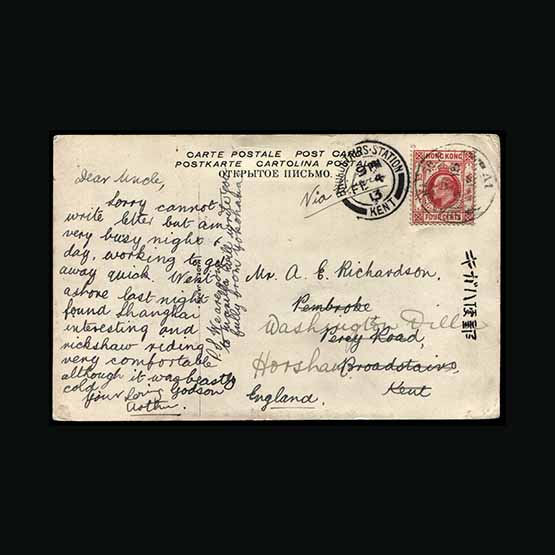 CARTE POSTALE POST CARD
POSTKARTE CARTOLINA POSTALE
ОТКРЫТОЕ ПИСЬМО.
Dear Uncle,
Sorry cannot
write letter but am
very busy night &
day, working to get
away quick Went
ashore last night
found Shanghai
interesting and
rickshaw riding
very comfortable
although it was beastly
cold
Your Loving Godson
Arthur.
P.S. We are going
to and write you
fully from Yokohama
Via
BROADSTAIRS·STATION
9 PM
FE 4
13
KENT
HONG KONG
FOUR CENTS
Mr. A. E. Richardson,
Pembroke
Washington Villa
Percy Road,
Horsham
Broadstairs,
Kent
England.